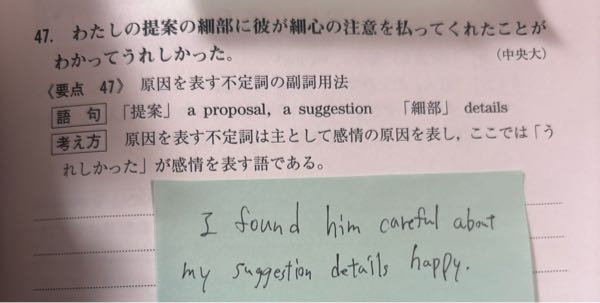 47. わたしの提案の細部に彼が細心の注意を払ってくれたことが
わかってうれしかった。 (中央大)
《要点 47》 原因を表す不定詞の副詞用法
語句 「提案」 a proposal, a suggestion 「細部」 details
考え方 原因を表す不定詞は主として感情の原因を表し，ここでは「う
れしかった」が感情を表す語である。
I found him careful about
my suggestion details happy.